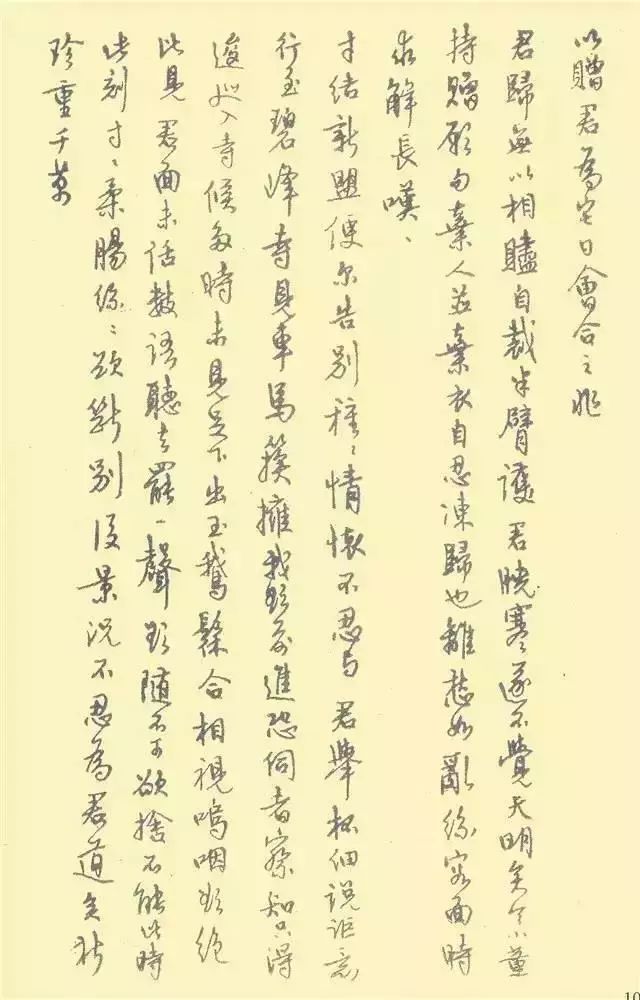 以贈君為它日會合之兆
君歸無以相贐自裁半臂護君曉寒遂不覺天明矣令小童
持贈願勿棄人並棄衣自忍凍歸也離愁如亂絲容面時
求解長嘆、
才結新盟便尔告別種〻情懷不忍与君舉杯細說詎意
行至碧峰寺見車馬簇擁我欲前進恐伺者察知只得
逡巡入寺候多時未見足下出玉鵝鬆合相視嗚咽欲絕
此見君面未話數語聽去罷一聲欲隨不可欲捨不能此時
此刻寸〻柔腸絲〻欲斷別後景況不忍為君道矣
珍重千萬
10